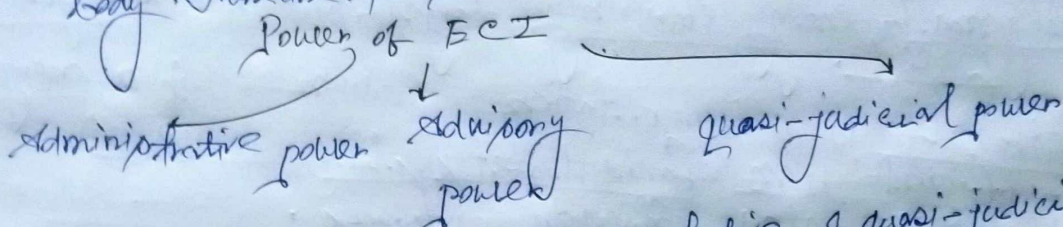 body
Power of ECI
Administrative power
Advisory power
quasi-judicial power
quasi-judici